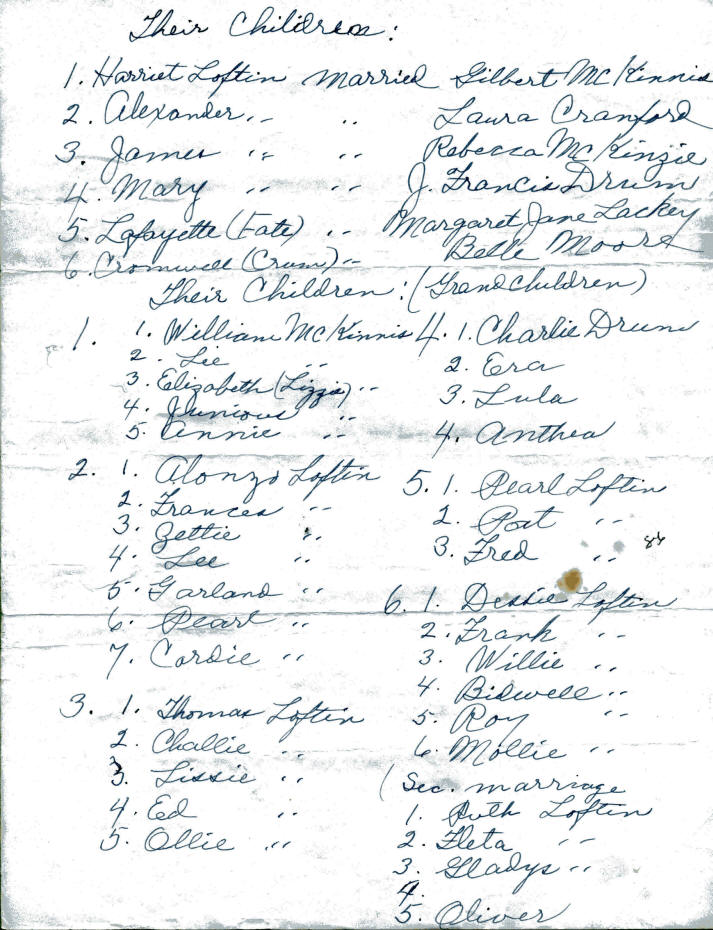 Their Children:
1. Harriet Loftin married Gilbert McKinnis
2. Alexander " " Laura Cranford
3. James " " Rebecca McKinzie
4. Mary " " J. Francis Drum
5. Lafayette (Fate) " Margaret Jane Lackey
6. Cromwell (Crum) " Belle Moore
Their Children: (Grandchildren)
1. 1. William McKinnis
2. Lee "
3. Elizabeth (Lizzie) "
4. Junious "
5. Annie "
2. 1. Alonzo Loftin
2. Frances "
3. Zettie "
4. Lee "
5. Garland "
6. Pearl "
7. Cordie "
3. 1. Thomas Loftin
2. Challie "
3. Lissie "
4. Ed "
5. Ollie "
4. 1. Charlie Drum
2. Era
3. Lula
4. Anthea
5. 1. Pearl Loftin
2. Poat "
3. Fred "
6. 1. Dessie Loftin
2. Frank "
3. Willie "
4. Bidwell "
5. Roy "
6. Mollie "
(Sec. marriage
1. Ruth Loftin
2. Fleta "
3. Gladys "
4.
5. Oliver